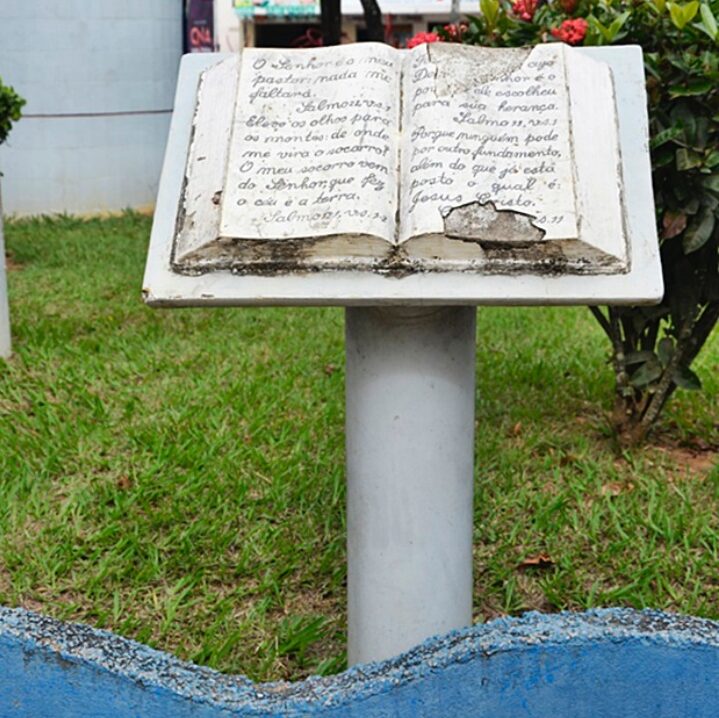 O Senhor é o meu
pastor: nada me
faltará.
Salmo
Elevo os olhos para
os montes: de onde
me vira o socorro?
O meu socorro vem
do Senhor, que fez
o céu é a terra.
Salmo
cujo
hor é o
ele escolheu
para sua herança.
Salmo
Porque ninguém pode
por outro fundamento,
além do que já está
posto o qual é:
Jesus Cristo.